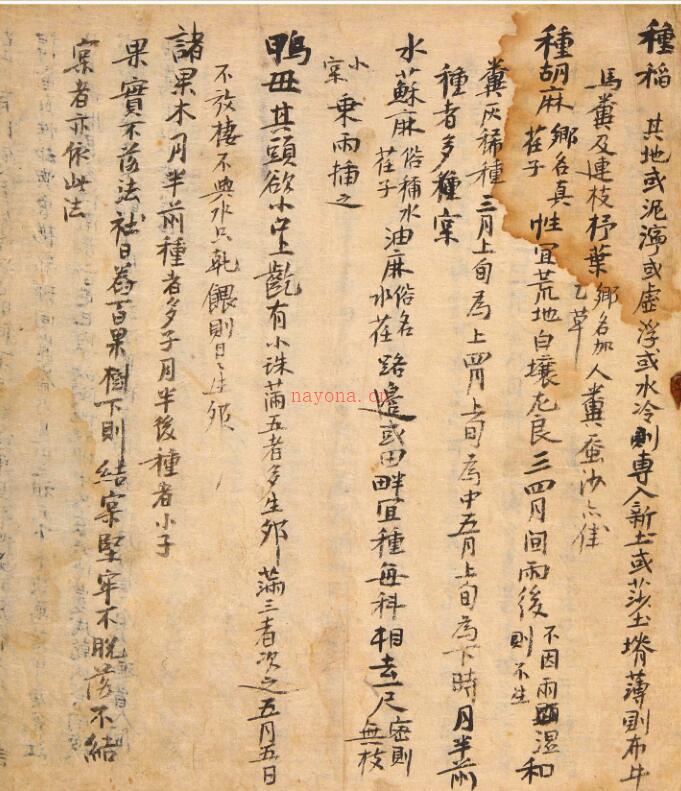 種稻 其地或泥濘或虛浮或水冷則專入新土或莎土塉薄則布牛
馬糞及連枝杼葉鄕名加乙草人糞蚕沙亦佳
種胡麻鄕名真荏子性宜荒地白壤尤良三四月间雨後不因雨顯湿則不生和
糞灰稀種三月上旬爲上四月上旬爲中五月上旬爲下時月半前
種者多種宲
水蘇麻俗稱水荏子油麻俗名水荏路邊或田畔宜種每科相去一尺密則無枝
小宲乘雨揷之
鴨母其頭欲小口上齕有小珠滿五者多生卵滿三者次之五月五日
不放棲不與水只乾餵則日〻生卵
諸果木月半前種者多子月半後種者小子
果實不落法社日舂百果樹下則結宲堅牢不脫落不結
宲者亦依此法
nayona.cn